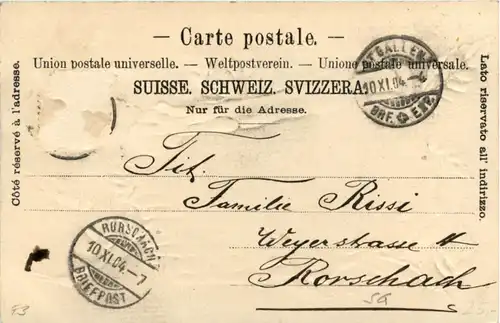 — Carte postale. —
Union postale universelle. — Weltpostverein. — Unione postale universale.
SUISSE. SCHWEIZ. SVIZZERA.
Nur für die Adresse.
Côté réservé à l'adresse.
Lato riservato all' indirizzo.
GALLEN
10.XI.04.–4
BRF. EXP.
Tit.
Familie Rissi
Weyerstrasse
Rorschach
RORSCHACH
10.XI.04.–7
BRIEFPOST
SG